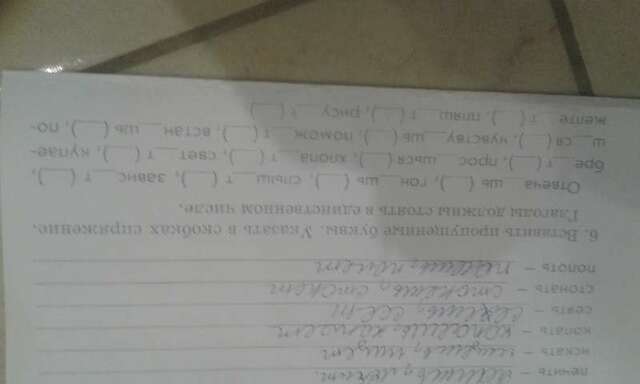 лечить – лечишь, лечит.
искать – ищешь, ищет
копать – копаешь, копает
сеять – сеешь, сеет
стонать – стонешь, стонет
полоть – полешь, полет
6. Вставить пропущенные буквы. Указать в скобках спряжение.
Глаголы должны стоять в единственном числе.
Отвеча__шь (__), гон__шь (__), слыш__т (__), завис__т (__),
бре__т (__), прос__шься (__), хлопа__т (__), свет__т (__), купае-
ш__ся (__), чувству__шь (__), помож__т (__), встан__шь (__), по-
желте__т (__), пляш__т (__), рису__т (__)